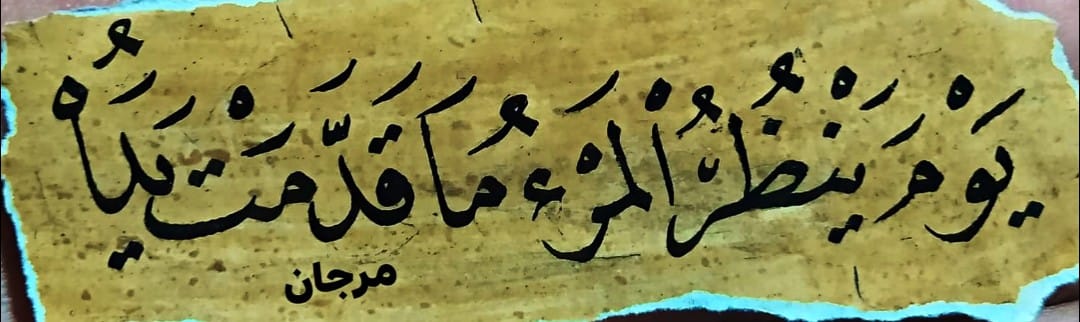 يَوْمَ يَنْظُرُ الْمَرْءُ مَا قَدَّمَتْ يَدَاهُ
مرجان